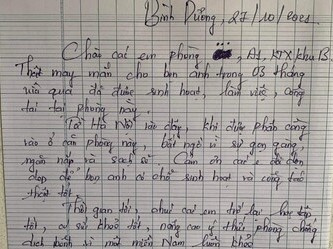 Bình Dương, 27/10/2021
Chào các em phòng A1, KTX khu B.
Thật may mắn cho bọn anh trong 03 tháng
vừa qua đã được sinh hoạt, làm việc, công
tác tại phòng này.
Từ Hà Nội vào đây, khi được phân công
vào ở căn phòng này, bất ngờ vì sự gọn gàng,
ngăn nắp và sạch sẽ. Cảm ơn các e đã dọn
dẹp để bọn anh có chỗ sinh hoạt và công tác
thật tốt.
Thời gian tới, chúc các em trở lại học tập
tốt, có sức khoẻ tốt, nâng cao ý thức phòng chống
dịch bệnh vì một miền Nam luôn khoẻ